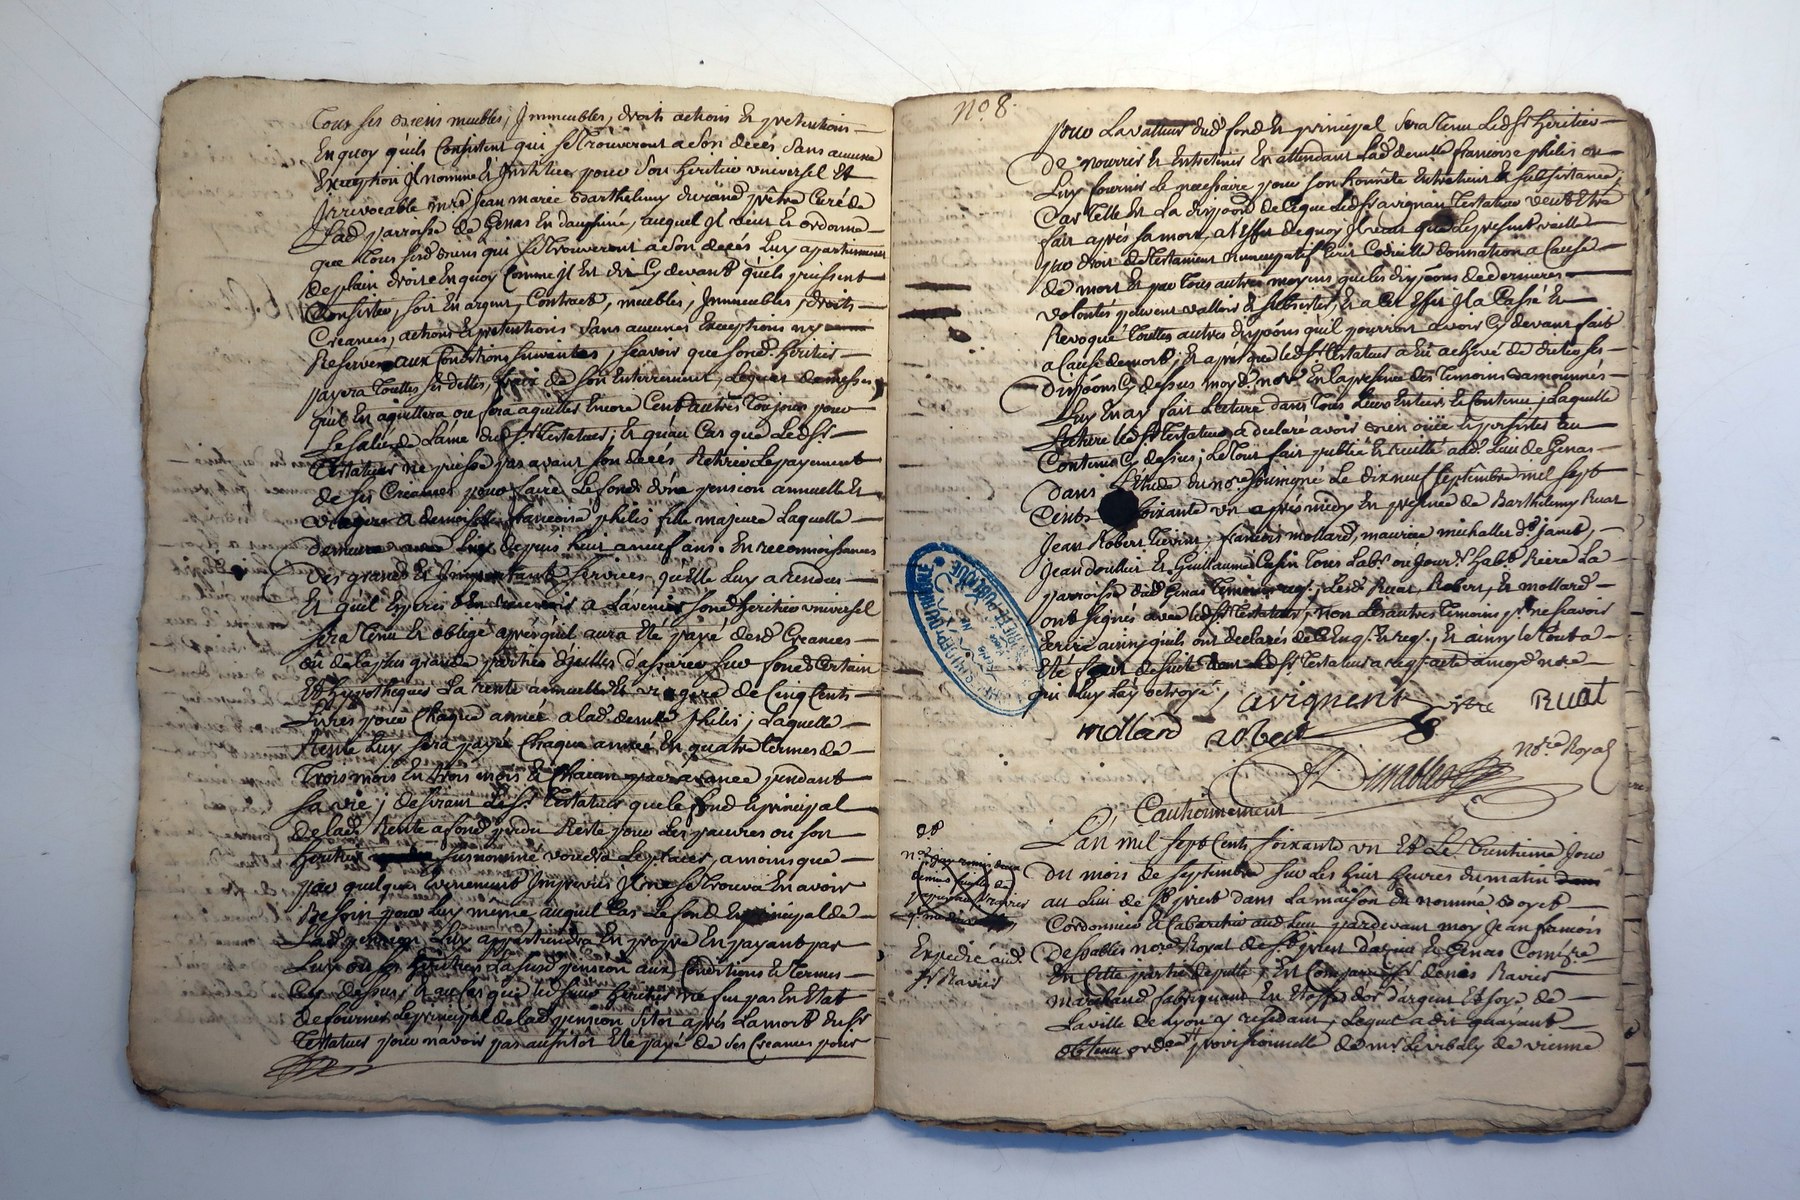 Tous ses biens meubles, Immeubles, droits actions et pretentions
En quoy qu'ils Consistent qui se trouveront a son décés sans aucune
Exception Il nomme et Institue pour son heritier universel et
Irrevocable mre jean marie Barthelemy prêtre Curé de
Lad parroisse de Genas En dauphiné, auquel Il veut et ordonne
que tous sesd biens qui se trouveront a son décés Luy apartiennent
de plain droit En quoy Comme Il est dit Cy devant qu'ils puissent
Consister, soit En argent, Contract, meubles, Immeubles, droits
Creances, actions et pretentions sans aucunes Exceptions ny
Reserve aux Conditions suivantes, scavoir que sond heritier
payera touttes ses dettes, fraix de son Enterrement, Legats de messes
qu'il En aquittera ou fera aquitter Encore Cent autres toujours pour
Le salut de L'ame dud sr Testateur; et qu'au Cas que Led sr
Testateur ne puisse pas avant son décés Retirer Le payement
de ses Creances pour faire Le fond d'une pension annuelle et
viagere a demoiselle francoise philis fille majeure Laquelle
demeure avec Luy depuis huit a neuf ans. En reconnoissance
des grands et Importants services qu'Elle Luy a rendue
Et qu'il Espere En recevoir a L'avenir sond heritier universel
sera tenu et obligé aprés qu'il aura Eté payé desd Creances
ou de la plus grande partie d'Icelles d'assurer sur fond Certain
Et hypotheque La rente annuelle et viagere de Cinq Cents
Livres pour Chaque année a lad demlle philis; Laquelle
Rente Luy sera payée Chaque année En quatre termes de
Trois mois En trois mois et Chacun par avance pendant
sa vie; desirant Led sr Testateur que le fond et principal
de lad Rente a fond perdu Reste pour Les pauvres ou son
heritier susnommé voudra Le placer, a moins que
par quelques Evenements Imprevus Il ne se trouva En avoir
Besoin pour Luy même auquel Cas Le fond et principal de
Lad pension Luy appartiendra En propre En payant par
Luy ou ses heritiers La susd pension aux Conditions et termes
Cy dessus; Et au Cas que led sieur heritier ne fut pas En Etat
de fournir Le principal de lad pension sitot aprés La mort du sr
Testateur pour n'avoir pas aussitôt Eté payé de ses Creances pour
No. 8.
pour La valleur dud fond et principal sera tenu Led sr heritier
de nourrir et Entretenir En attendant Lad demlle francoise philis ou
Luy fournir Le necessaire pour son honnête Entretient et subsistance;
Car telle Est La dispon de Ce que led sr avignon Testateur veut Etre
fait aprés sa mort, a l'effet de quoy Il veut que Le present vaille
par droit de testament nuncupatif Ecrit Codicille donnation a Cause
de mort et par tous autres moyens que les dispons de dernieres
volontés peuvent valloir et subsister, Et a Cet Effet Il a Cassé et
Revoqué touttes autres dispons qu'il pourroit avoir Cy devant fait
a Cause de mort; et aprés que led sr Testateur a Eu achevé de dicter ses
dispons Cy dessus moyd. nore En la presence des Temoins
Luy En ay fait Lecture dans tous Leurs Entiers et Contenu, Laquelle
Lecture led sr Testateur a declaré avoir bien ouïe et persister au
Contenu Cy dessus; Le tout fait publié et recitté aud. Lieu de Genas
dans L'Etude du nore soussigné Le dix neuf septembre mil sept
Cents soixante un aprés midy En presence de Barthelemy Ruat
Jean Robert francois mollard, maurice michallet
Jean et Guillaume tous Labrs ou Jours habts Riere La
parroisse dud Genas Temoins Lesd Ruat, Robert, et mollard
ont signés avec led sr Testateur, non Les autres temoins pr ne scavoir
Ecrire ainsy qu'ils ont declarés de Ce Enq. et req.; Et ainsy le tout a
Eté fait de suite dont Led sr Testateur a req. acte a moyd nore
qui Luy Lay octroyé
avignent Ruat
mollard robert
nore Royal
Desnables
Cautionnement
L'an mil sept Cents soixante un Et Le trentieme Jour
du mois de septembre sur Les huit heures du matin
au Lieu de St priest dans La maison du nommé Boyet
Cordonnier et Cabaretier aud Lieu pardevant moy Jean francois
Desnables nore Royal de St priest et Genas Comre
En Cette partie deputé; Est Comparu sr denis Ravier
marchand fabriquant En Etoffe d'or d'argent Et soye de
La ville de Lyon y residant, Lequel a dit qu'ayant
obtenu orde provisionnelle de mr. Le vibaly de vienne
Expedié aud.
sr Ravier